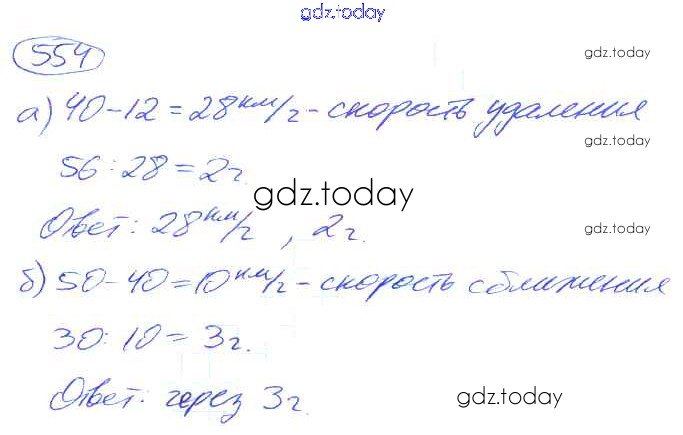 gdz.today
554
gdz.today
а) 40 - 12 = 28 км/ч - скорость удаления
gdz.today
56 : 28 = 2 ч.
gdz.today
Ответ: 28 км/ч , 2 ч.
gdz.today
б) 50 - 40 = 10 км/ч - скорость сближения
30 : 10 = 3 ч.
gdz.today
Ответ: через 3 ч.
gdz.today